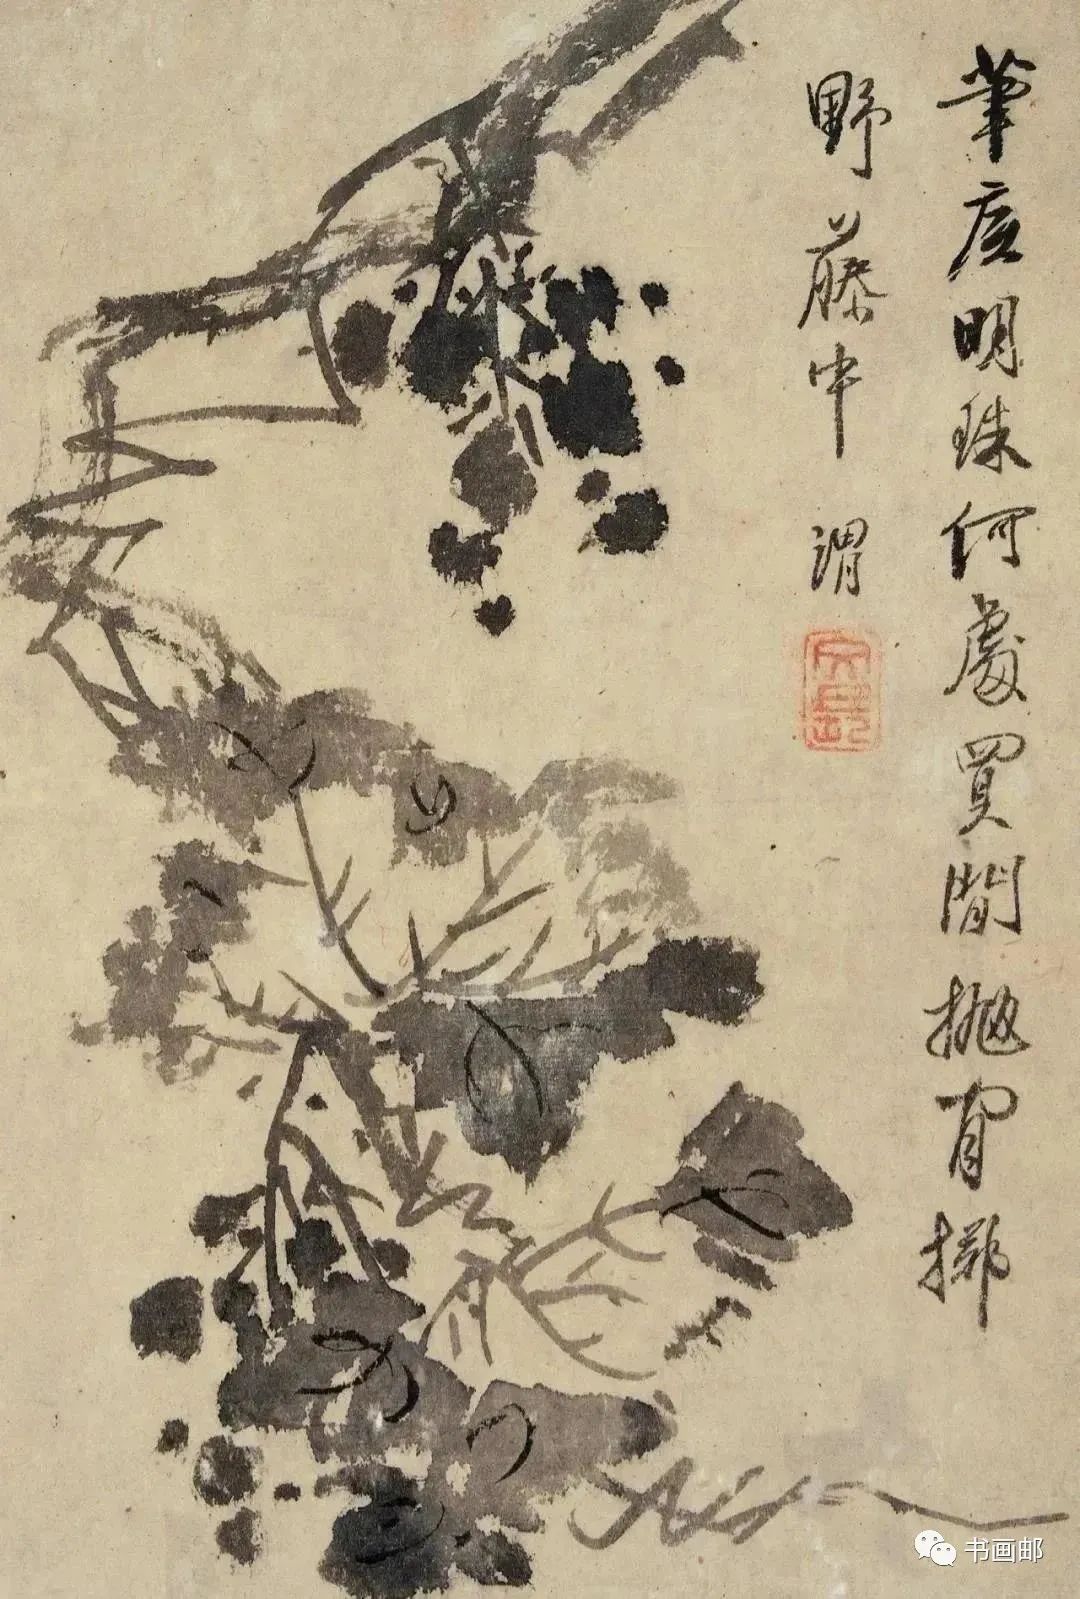 筆底明珠何處買閒拋閒擲
野藤中　渭
文長
书画邮